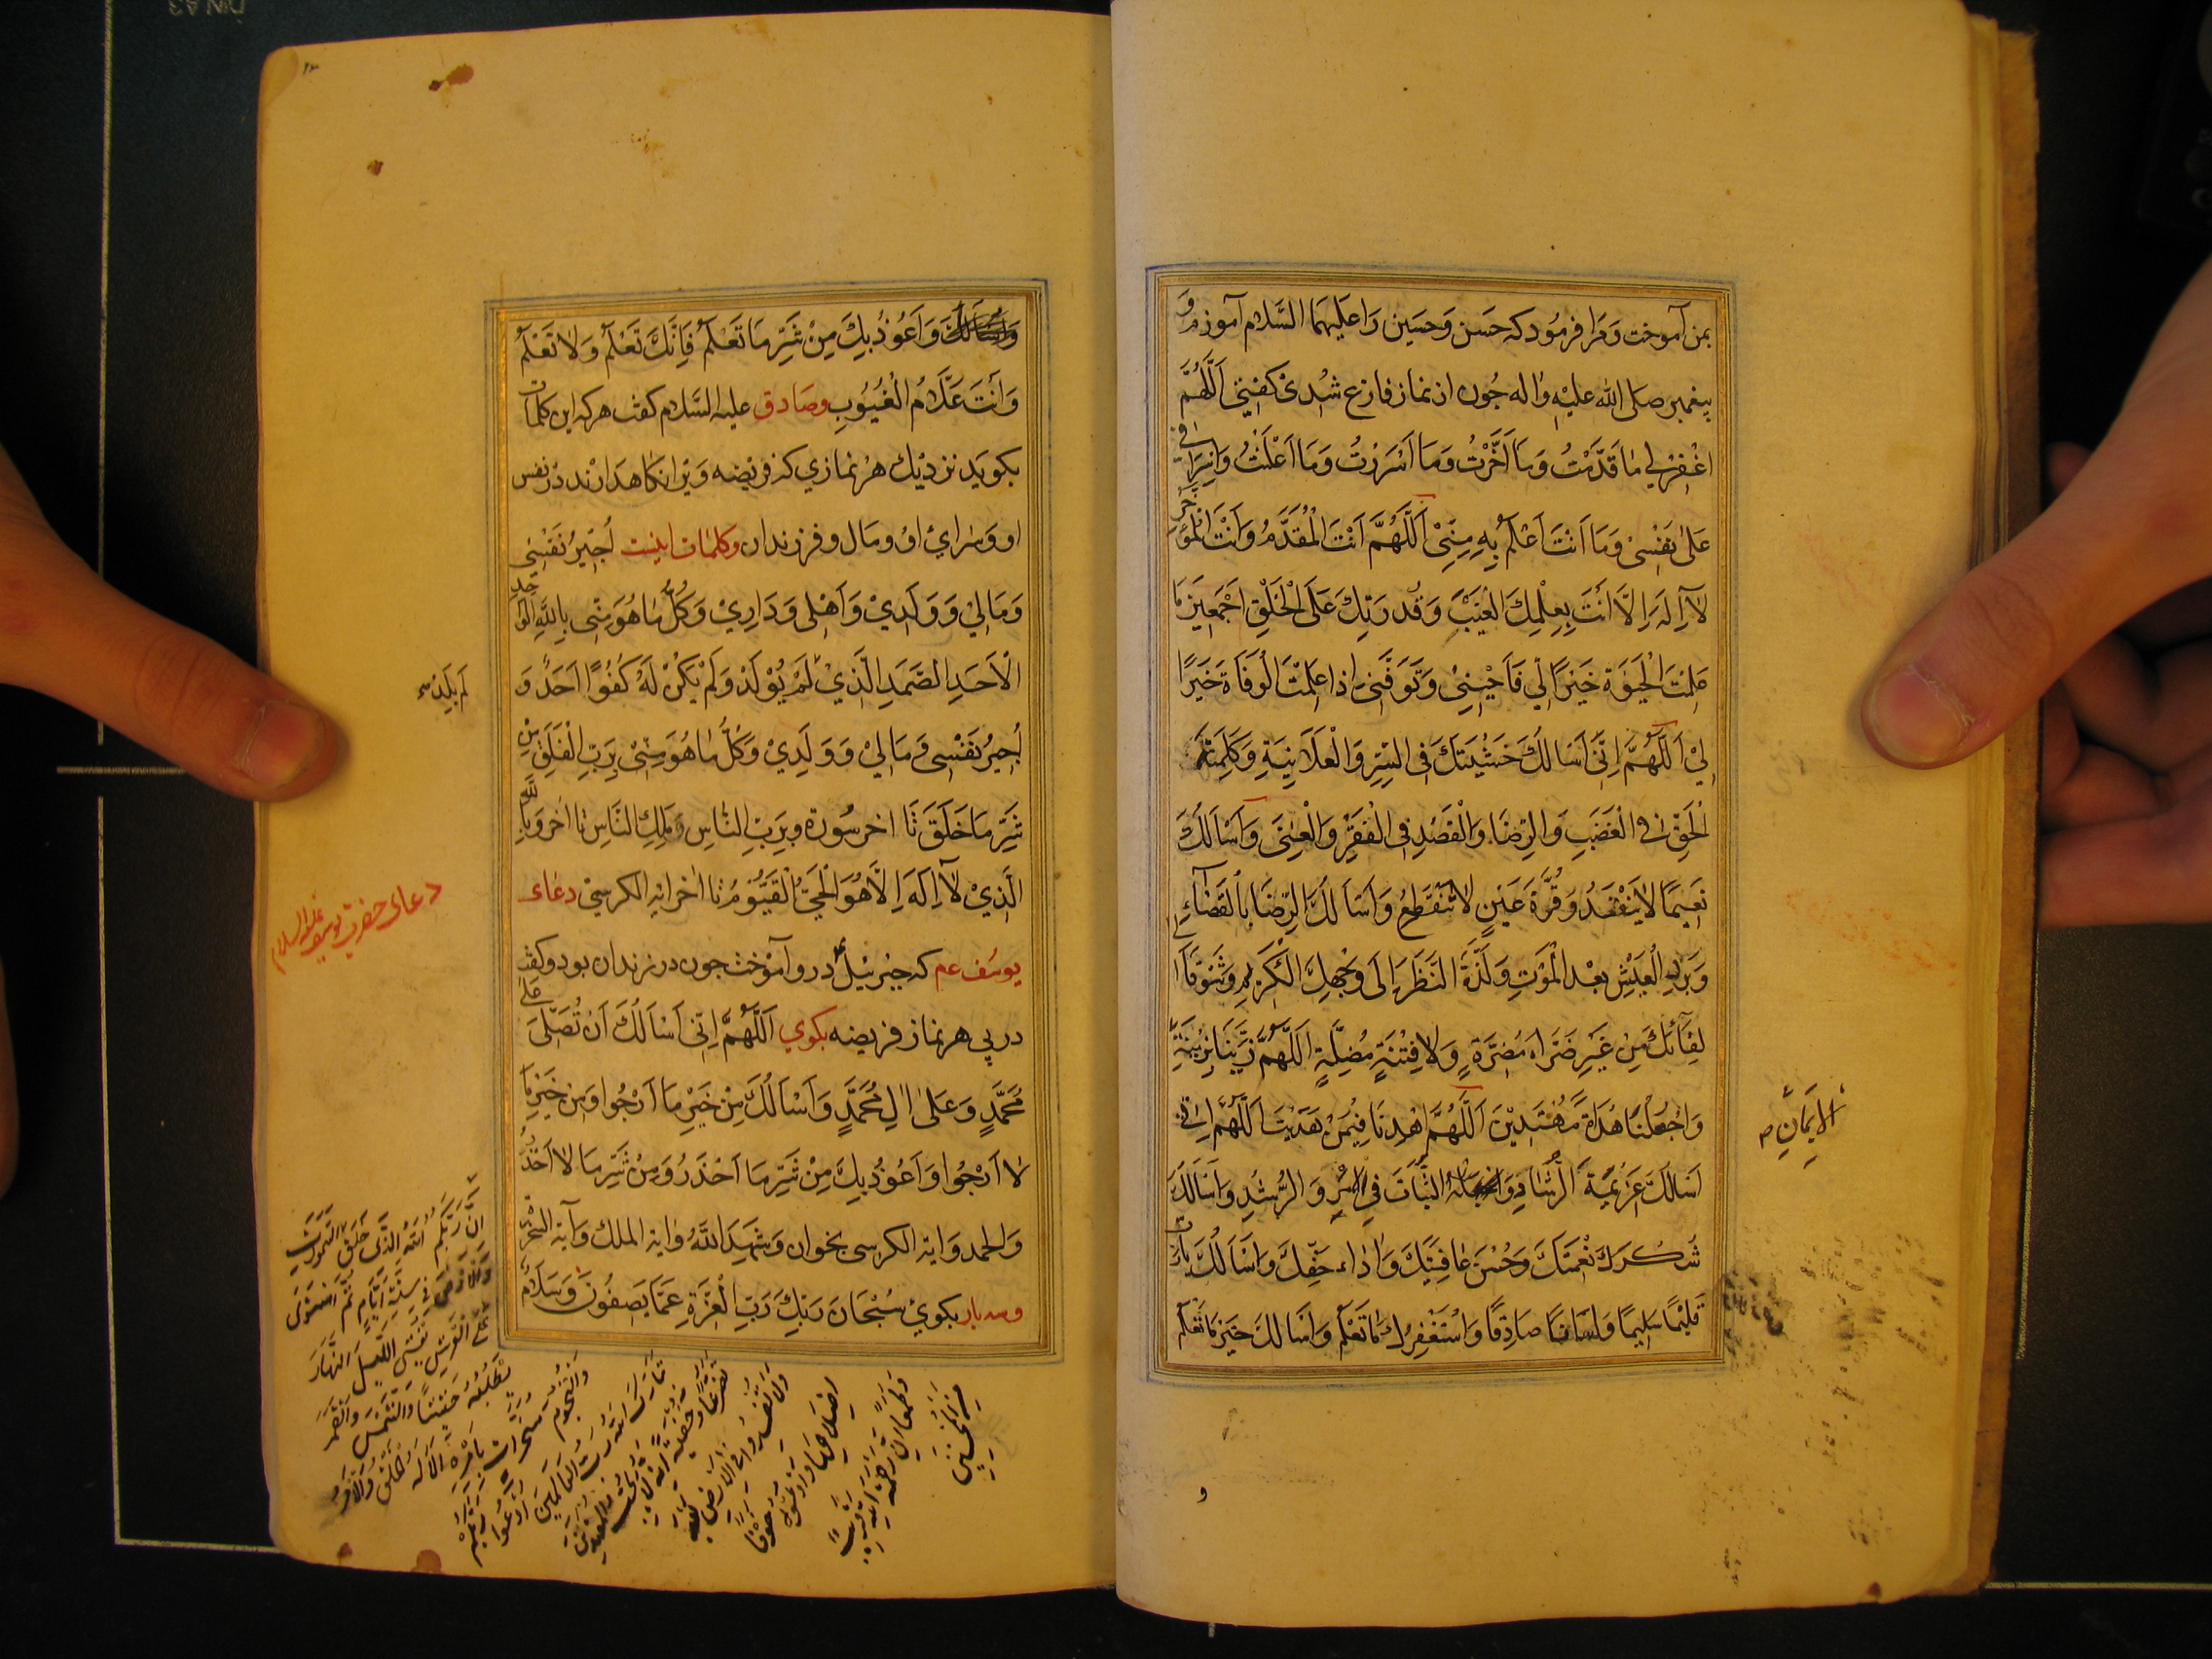 بمن آموخت و مرا فرمود که حسن و حسین را علیهما السلام آموزم و
پیغمبر صلی الله علیه واله چون از نماز فارغ شدی کفتی اَللّهُمَّ
اغْفِرْ لِي مَا قَدَّمْتُ وَمَا اَخَّرْتُ وَمَا اَسْرَرْتُ وَمَا اَعْلَنْتُ وَاِسْرَافِي
عَلَى نَفْسِي وَمَا اَنْتَ اَعْلَمُ بِهِ مِنِّي اَللّهُمَّ اَنْتَ الْمُقَدِّمُ وَاَنْتَ الْمُؤَخِّرُ
لَا اِلَهَ اِلَّا اَنْتَ بِعِلْمِكَ الْغَيْبَ وَقُدْرَتِكَ عَلَى الْخَلْقِ اَجْمَعِينَ مَا
عَلِمْتَ الْحَيٰوةَ خَيْرًا لِي فَاَحْيِنِي وَتَوَفَّنِي اِذَا عَلِمْتَ الْوَفَاةَ خَيْرًا
لِي اَللّهُمَّ اِنِّي اَسْاَلُكَ خَشْيَتَكَ فِي السِّرِّ وَالْعَلَانِيَةِ وَكَلِمَةَ
الْحَقِّ فِي الْغَضَبِ وَالرِّضَا وَالْقَصْدَ فِي الْفَقْرِ وَالْغِنَى وَاَسْاَلُكَ
نَعِيمًا لَا يَنْفَدُ وَقُرَّةَ عَيْنٍ لَا تَنْقَطِعُ وَاَسْاَلُكَ الرِّضَا بِالْقَضَاءِ
وَبَرْدَ الْعَيْشِ بَعْدَ الْمَوْتِ وَلَذَّةَ النَّظَرِ اِلَى وَجْهِكَ الْكَرِيمِ وَشَوْقًا اِلَى
لِقَائِكَ مِنْ غَيْرِ ضَرَّاءَ مُضِرَّةٍ وَلَا فِتْنَةٍ مُضِلَّةٍ اَللّهُمَّ زَيِّنَا بِزِينَةِ
الْاِيمَانِ
وَاجْعَلْنَا هُدَاةً مُهْتَدِينَ اَللّهُمَّ اهْدِنَا فِيمَنْ هَدَيْتَ اَللّهُمَّ اِنِّي
اَسْاَلُكَ عَزِيمَةَ الرَّشَادِ وَالثَّبَاتَ فِي الْاَمْرِ وَالرُّشْدِ وَاَسْاَلُكَ
شُكْرَكَ نِعْمَتِكَ وَحُسْنَ عَافِيَتِكَ وَاَدَاءَ حَقِّكَ وَاَسْاَلُكَ يَا رَبِّ
قَلْبًا سَلِيمًا وَلِسَانًا صَادِقًا وَاَسْتَغْفِرُكَ لِمَا تَعْلَمُ وَاَسْاَلُكَ خَيْرَ مَا تَعْلَمُ
وَاَعُوذُ بِكَ مِنْ شَرِّ مَا تَعْلَمُ فَاِنَّكَ تَعْلَمُ وَلَا نَعْلَمُ
وَاَنْتَ عَلَّامُ الْغُيُوبِ وصادق علیه السلام کفت هر که این کلمات
بکوید نزدیك هر نمازي که فریضه ویرا نکاه دارند در نفس
او وسرای او ومال وفرزندان وکلمات اینست اُجِيرُ نَفْسِي
وَمَالِي وَوَلَدِي وَاَهْلِي وَدَارِي وَكُلَّ مَا هُوَ مِنِّي بِاللّهِ الْوَاحِدِ
الْاَحَدِ الصَّمَدِ الَّذِي لَمْ يُولَدْ وَلَمْ يَكُنْ لَهُ كُفُوًا اَحَدٌ وَ
لم یلد
اُجِيرُ نَفْسِي وَمَالِي وَوَلَدِي وَكُلَّ مَا هُوَ مِنِّي بِرَبِّ الْفَلَقِ مِنْ
شَرِّ مَا خَلَقَ تا اخر سوره وبِرَبِّ النَّاسِ مَلِكِ النَّاسِ تا اخر وَبِاللّهِ
الَّذِي لَا اِلَهَ اِلَّا هُوَ الْحَيُّ الْقَيُّومُ تا اخر ایة الکرسي دعاء
دعای حضرت یوسف علیه السلام
یوسف عم که جبرئیل درو آموخت چون در زندان بود وکفت
در پی هر نماز فریضه بکوي اَللّهُمَّ اِنِّي اَسْاَلُكَ اَنْ تُصَلِّيَ عَلَى
مُحَمَّدٍ وَعَلَى الِ مُحَمَّدٍ وَاَسْاَلُكَ مِنْ خَيْرِ مَا اَرْجُوا وَمِنْ خَيْرِ مَا
لَا اَرْجُوا وَاَعُوذُ بِكَ مِنْ شَرِّ مَا اَحْذَرُ وَمِنْ شَرِّ مَا لَا اَحْذَرُ
والحمد وایة الکرسی بخوان وشَهِدَ اللّهُ وایة الملك وآیة السخرة
وسه بار بکوي سُبْحَانَ رَبِّكَ رَبِّ الْعِزَّةِ عَمَّا يَصِفُونَ وَسَلَامٌ
اِنَّ رَبَّكُمُ اللّهُ الَّذِي خَلَقَ السَّمٰوَاتِ
وَالْاَرْضَ فِي سِتَّةِ اَيَّامٍ ثُمَّ اسْتَوَى
عَلَى الْعَرْشِ يُغْشِي اللَّيْلَ النَّهَارَ
يَطْلُبُهُ حَثِيثًا وَالشَّمْسَ وَالْقَمَرَ
وَالنُّجُومَ مُسَخَّرَاتٍ بِاَمْرِهِ اَلَا لَهُ الْخَلْقُ وَالْاَمْرُ
تَبَارَكَ اللّهُ رَبُّ الْعَالَمِينَ اُدْعُوا رَبَّكُمْ
تَضَرُّعًا وَخُفْيَةً اِنَّهُ لَا يُحِبُّ الْمُعْتَدِينَ
وَلَا تُفْسِدُوا فِي الْاَرْضِ بَعْدَ
اِصْلَاحِهَا وَادْعُوهُ خَوْفًا
وَطَمَعًا اِنَّ رَحْمَةَ اللّهِ قَرِيبٌ
مِنَ الْمُحْسِنِينَ